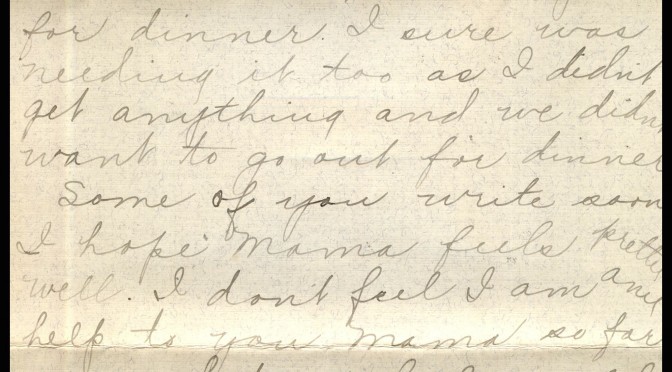 for dinner. I sure was
needing it too as I didn't
get anything and we didn
want to go out for dinner
Some of you write soon
I hope Mama feels pretty
well. I dont feel I am any
help to you Mama so far